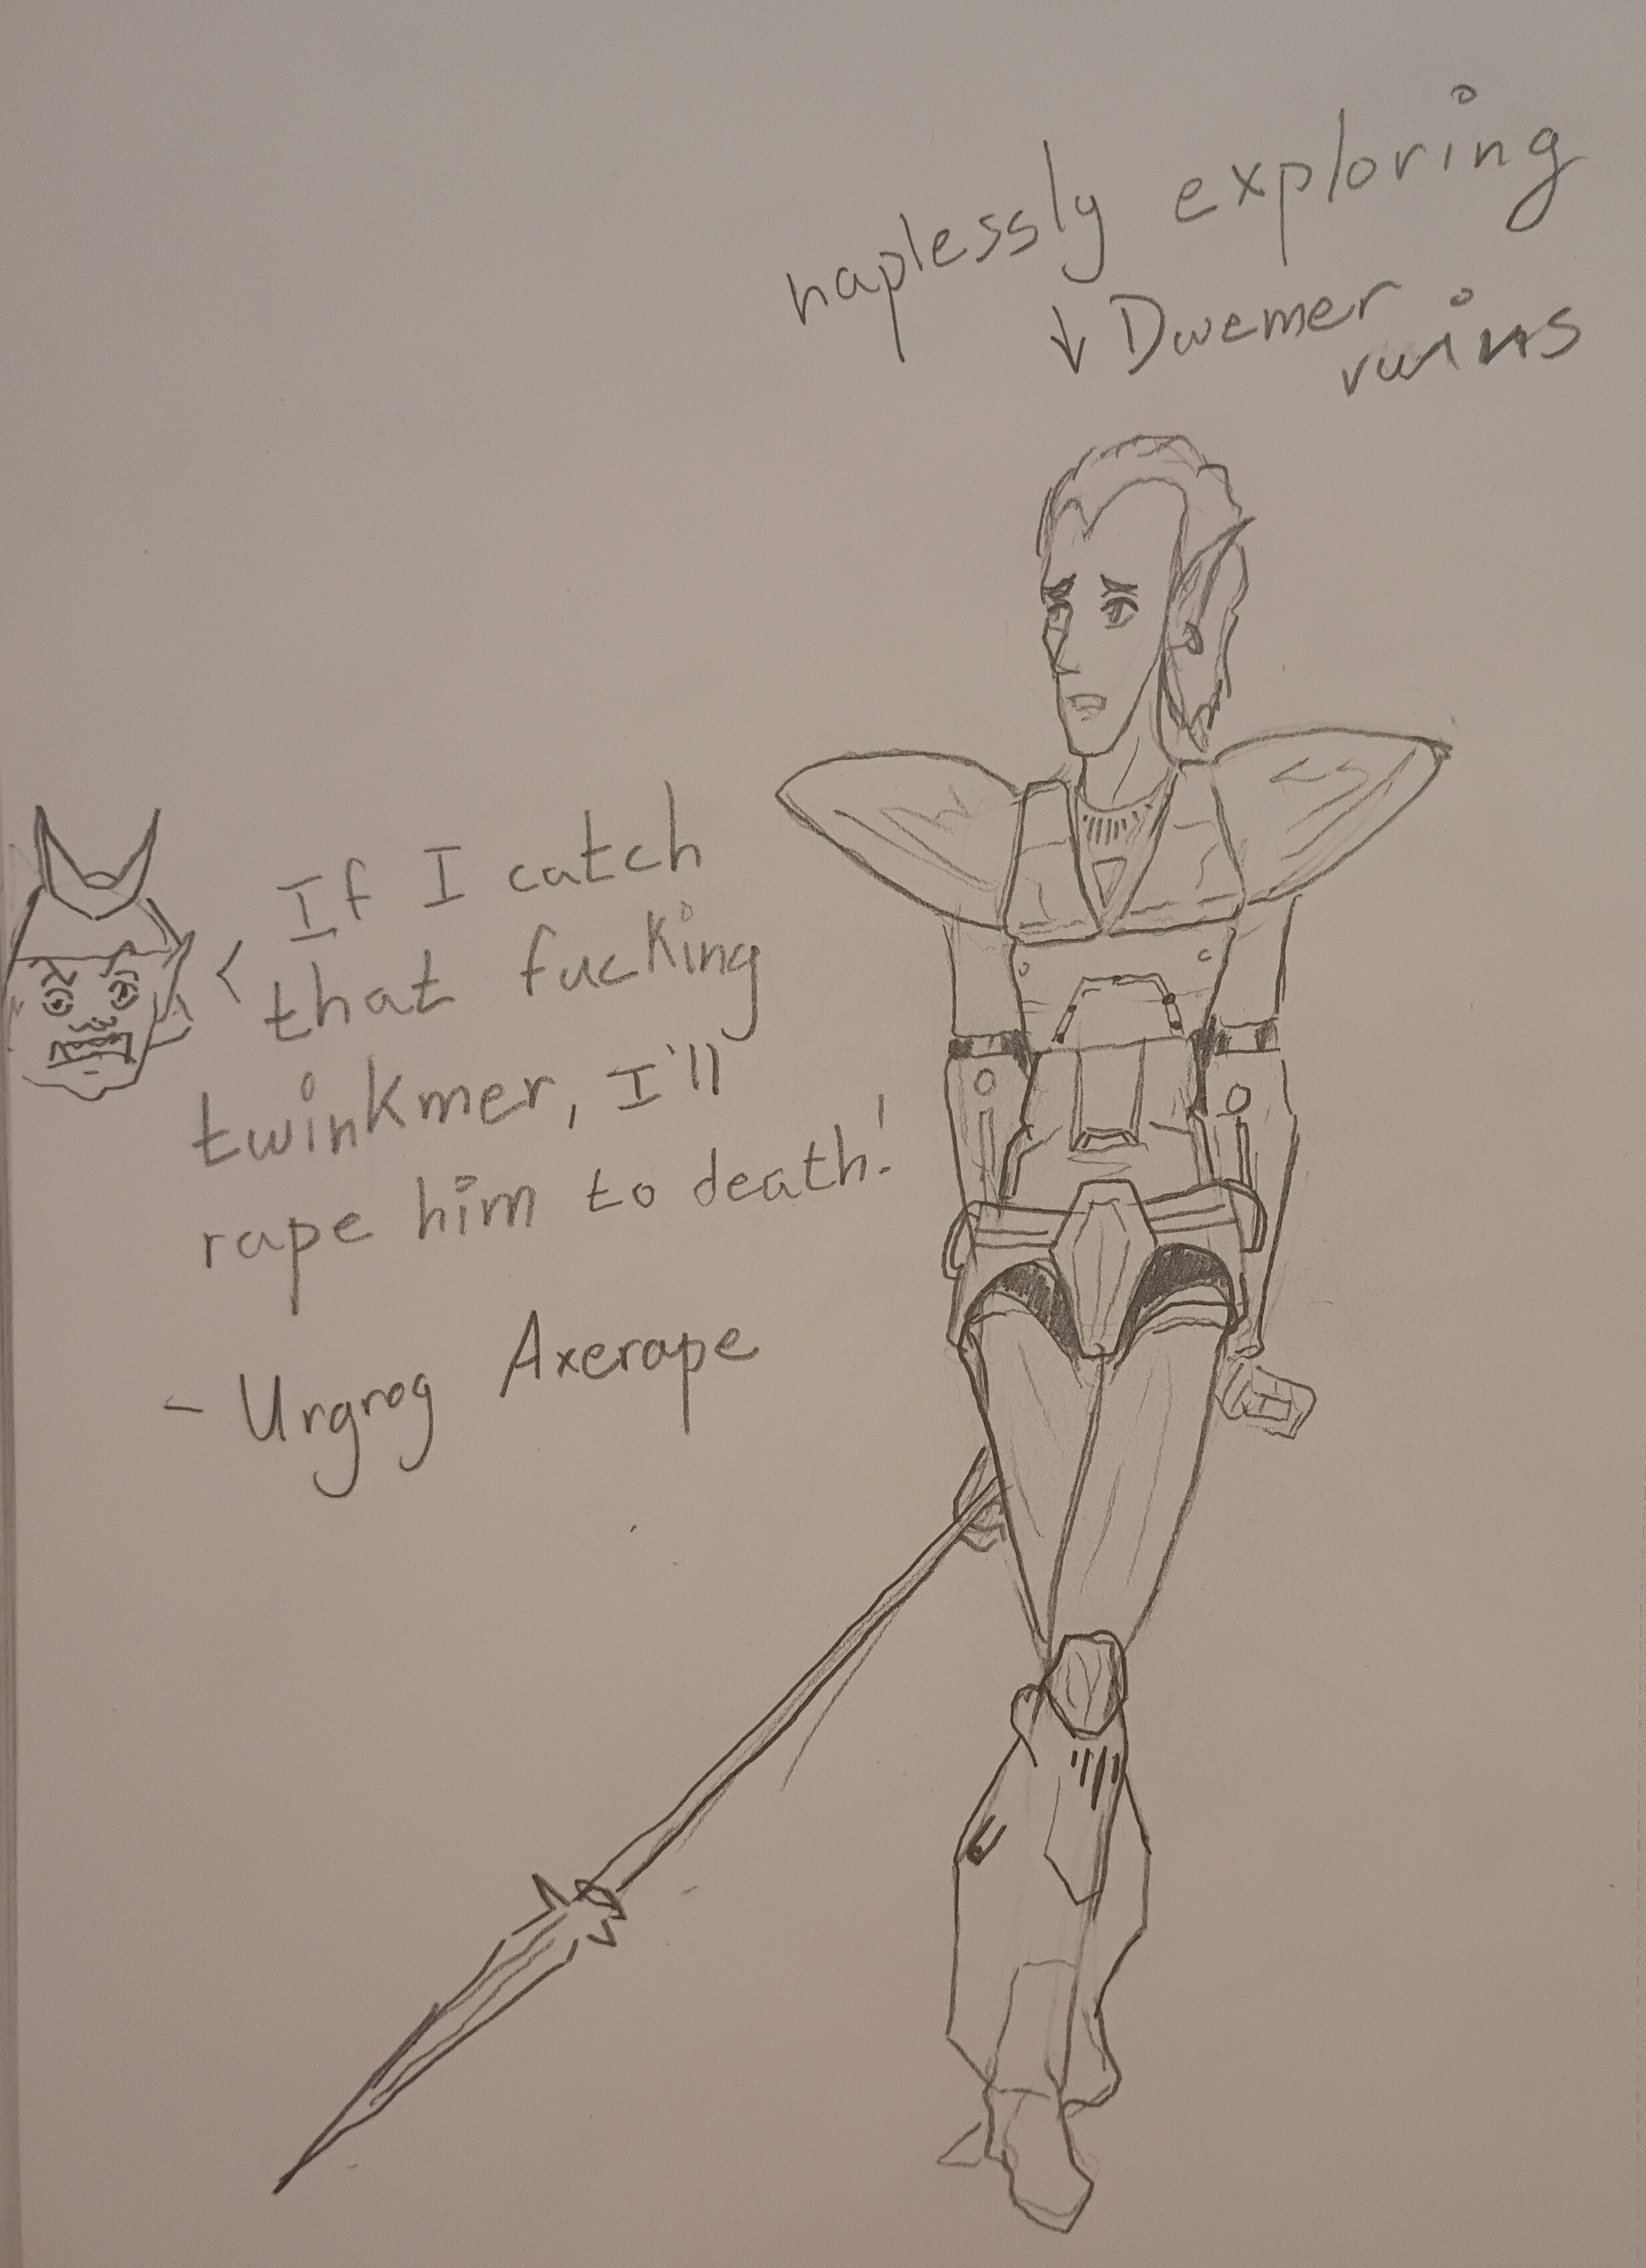 haplessly exploring
↓ Dwemer
ruins
< If I catch
that fucking
twinkmer, I'll
rape him to death!
- Urgrog Axerape